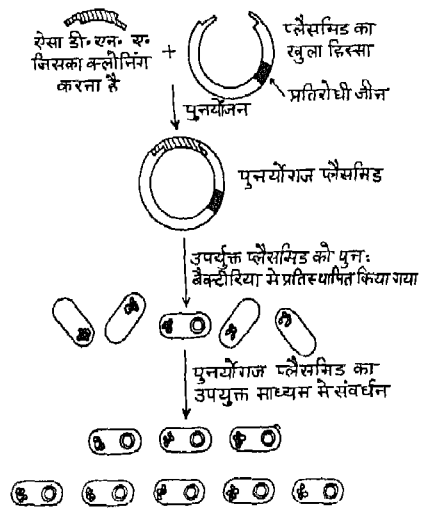 ऐसा डी. एन. ए.
जिसका क्लोनिंग
करना है
+
प्लैसमिड का
खुला हिस्सा
प्रतिरोधी जीन
पुनर्योजन
पुनर्योगज प्लैसमिड
उपर्युक्त प्लैसमिड को पुनः
बैक्टीरिया मे प्रतिस्थापित किया गया
पुनर्योगज प्लैसमिड का
उपयुक्त माध्यम मे संवर्धन